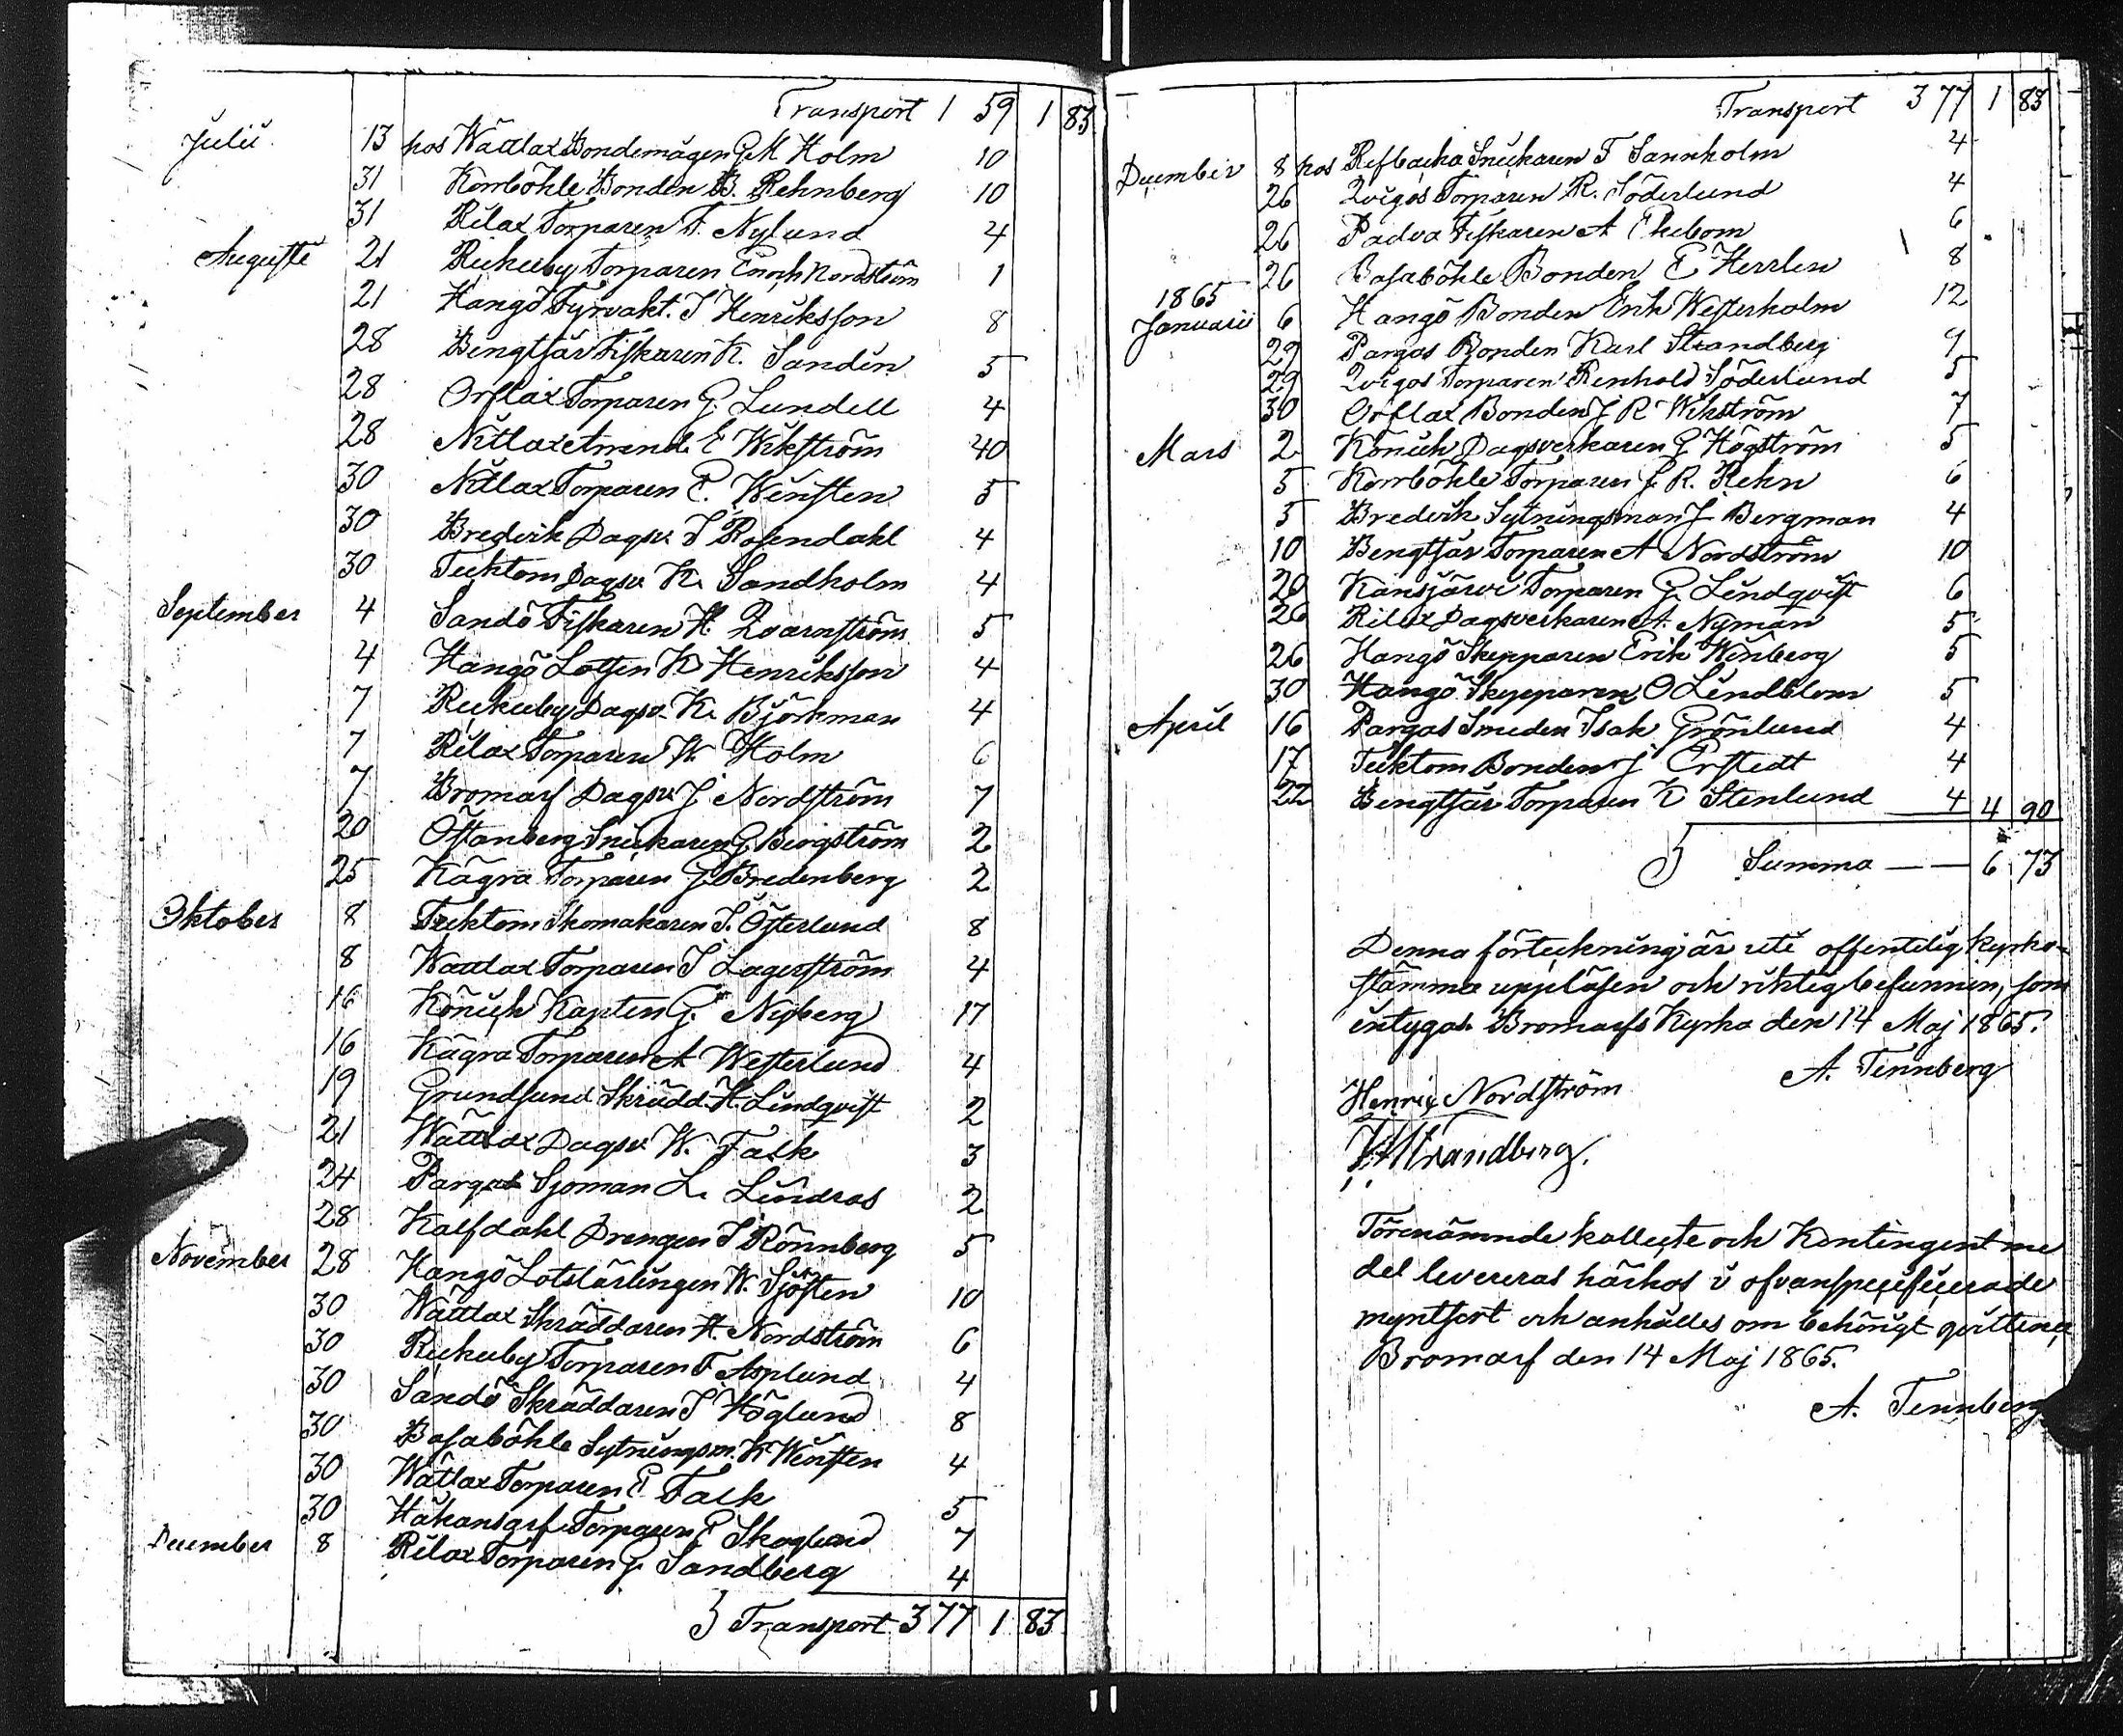 Transport 1 59 1 83
Julii 13 hos Wättlax Bondemågen G M Holm 10
31 Kornböhle Bonden B. Rehnberg 10
31 Rilax Torparen F. Nylund 4
Augusti 21 Rickuby Torparen Enoch Nordström 1
21 Hangö Fyrvakt. J Henriksson 8
28 Bengtsår Fiskaren K. Sandén 5
28 Orslax Torparen G. Lundell 4
28 Nitlax Arrend. E Wikström 40
30 Nitlax Torparen E. Winsten 5
30 Brederik Dagsv. J Rosendahl 4
30 Tecktom Dagsv K. Sandholm 4
September 4 Sandö Fiskaren H. Qvarnström 5
4 Hangö Lotsen K Henriksson 4
7 Rickuby Dagsv. K. Björkman 4
7 Rilax Torparen W. Holm 6
7 Bromarf Dagsv. J. Nordström 7
20 Östanberg Snickaren G. Bergström 2
25 Kägra Torparen G. Bredenberg 2
Oktober 8 Tecktom Skomakaren J. Österlund 8
8 Wättlax Torparen J Lagerström 4
16 Könick Kapten G. Nyberg 17
16 Kägra Torparen A Westerlund 4
19 Grundsund Skrädd. H. Lindqvist 2
21 Wättlax Dagsv W. Falk 3
24 Pargas Sjöman L. Lindros 2
28 Kalfdahl Drengen J Rönnberg 5
November 28 Hangö Lotslärlingen W. Sjösten 10
30 Wättlax Skräddaren H. Nordström 6
30 Rickuby Torparen F Asplund 4
30 Sandö Skräddaren J Höglund 8
30 Basaböhle Sytningsm. K Winsten 4
30 Wättlax Torparen E Falk 5
30 Håkansarf Torparen E Skoglund 7
December 8 Rilax Torparen G. Sandberg 4
Transport 3 77 1 83
Transport 3 77 1 83
December 8 hos Refbacka Snickaren F Sannholm 4
26 Qvigos Torparen R. Söderlund 4
26 Padva Fiskaren A Ekebom 6
26 Basaböhle Bonden E Herrlin 8
1865
Januarii 6 Hangö Bonden Erik Westerholm 12
29 Pargas Bonden Karl Strandberg 9
29 Qvigos Torparen Renhold Söderlund 5
30 Orslax Bonden J R Wikström 7
Mars 2 Könick Dagsverkaren G Högström 5
5 Kornböhle Torparen J. R. Rehn 6
5 Brederik Sytningsman J Bergman 4
10 Bengtsår Torparen A Nordström 10
20 Kansjärvi Torparen G. Lindqvist 6
26 Rilax Dagsverkaren A. Nyman 5
26 Hangö Skepparen Erik Winberg 5
30 Hangö Skepparen O Lindblom 5
April 16 Pargas Smeden Isak Grönlund 4
17 Tecktom Bonden J Erstedt 4
22 Bengtsår Torparen K Stenlund 4 4 90
Summa — — 6 73
Denna förteckning är uti offentelig kyrko-
stämma uppläsen och riktig befunnen, som
intygas. Bromarfs Kyrka den 14 Maj 1865.
A. Tennberg
Henric Nordström
Strandberg.
Förenämnde kollecte och Kontingent me
del levereras härhos i ofvanspecificerade
myntsort och anhålles om behörigt qvittence
Bromarf den 14 Maj 1865.
A. Tennberg